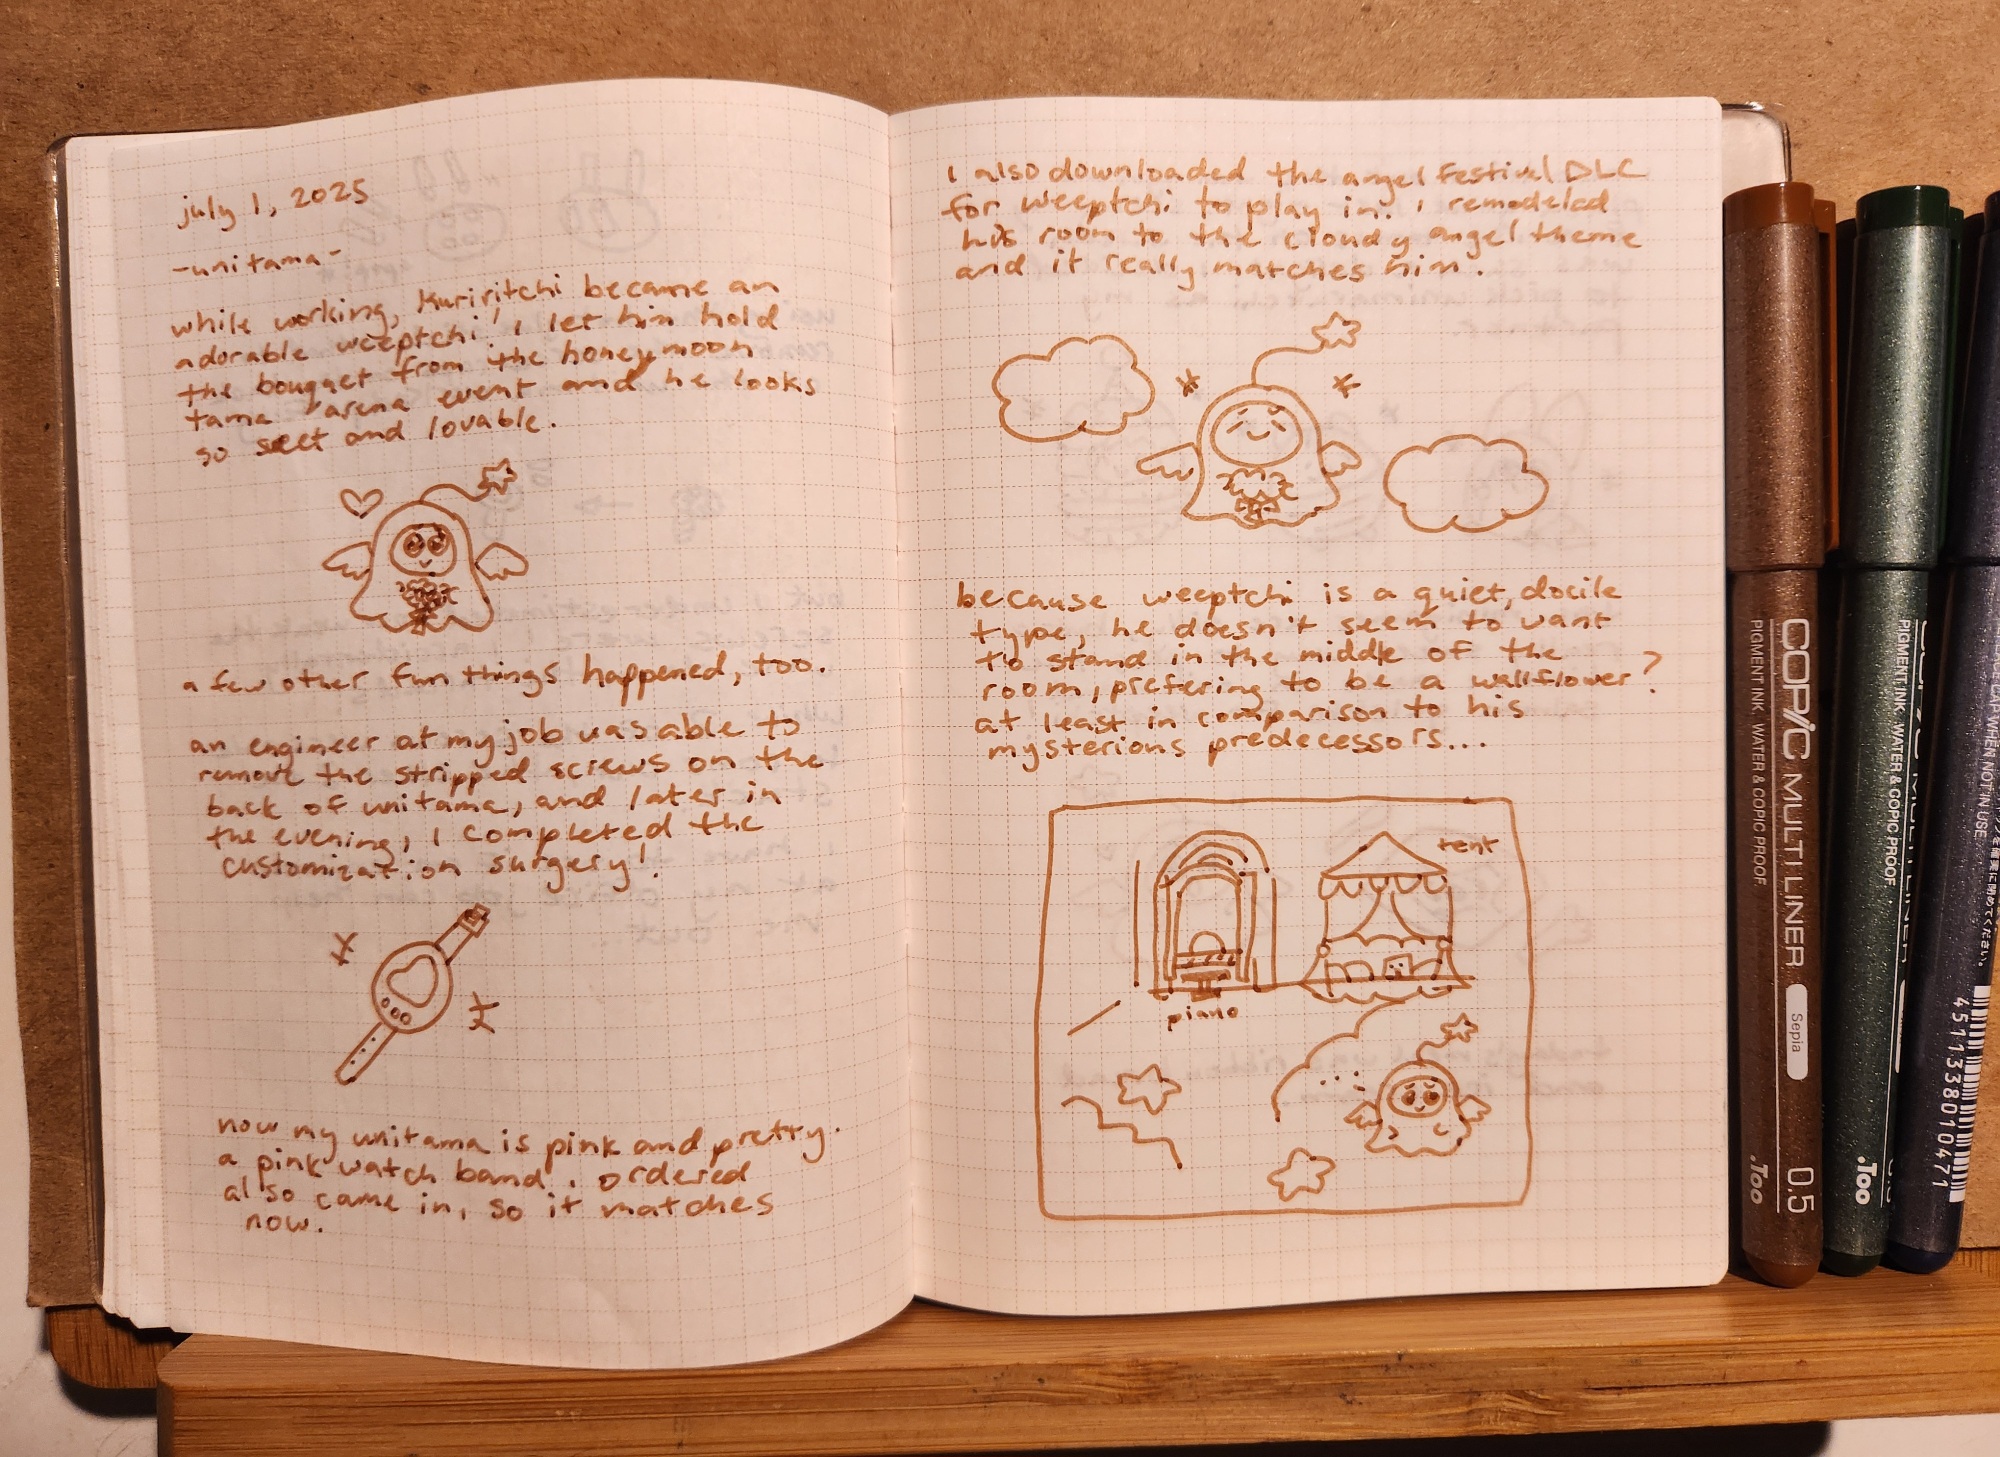 july 1, 2025
-unitama-
while working, Kuriritchi became an
adorable weeptchi! I let him hold
the bouquet from the honeymoon
tama arena event and he looks
so seet and lovable.
a few other fun things happened, too.
an engineer at my job was able to
remove the stripped screws on the
back of unitama, and later in
the evening, I completed the
customization surgery!
now my unitama is pink and pretty.
a pink watch band I ordered
also came in, so it matches
now.
I also downloaded the angel festival DLC
for weeptchi to play in. I remodelad
his room to the cloudy angel theme
and it really matches him.
because weeptchi is a quiet, docile
type, he doesn't seem to want
to stand in the middle of the
room, prefering to be a wallflower?
at least in comparison to his
mysterious predecessors...
tent
piano
COPIC MULTI LINER
PIGMENT INK WATER & COPIC PROOF
Sepia
0.5
.Too
PIGMENT INK WATER & COPIC PROOF
.Too
CAP WHEN NOT IN USE
4511338010471